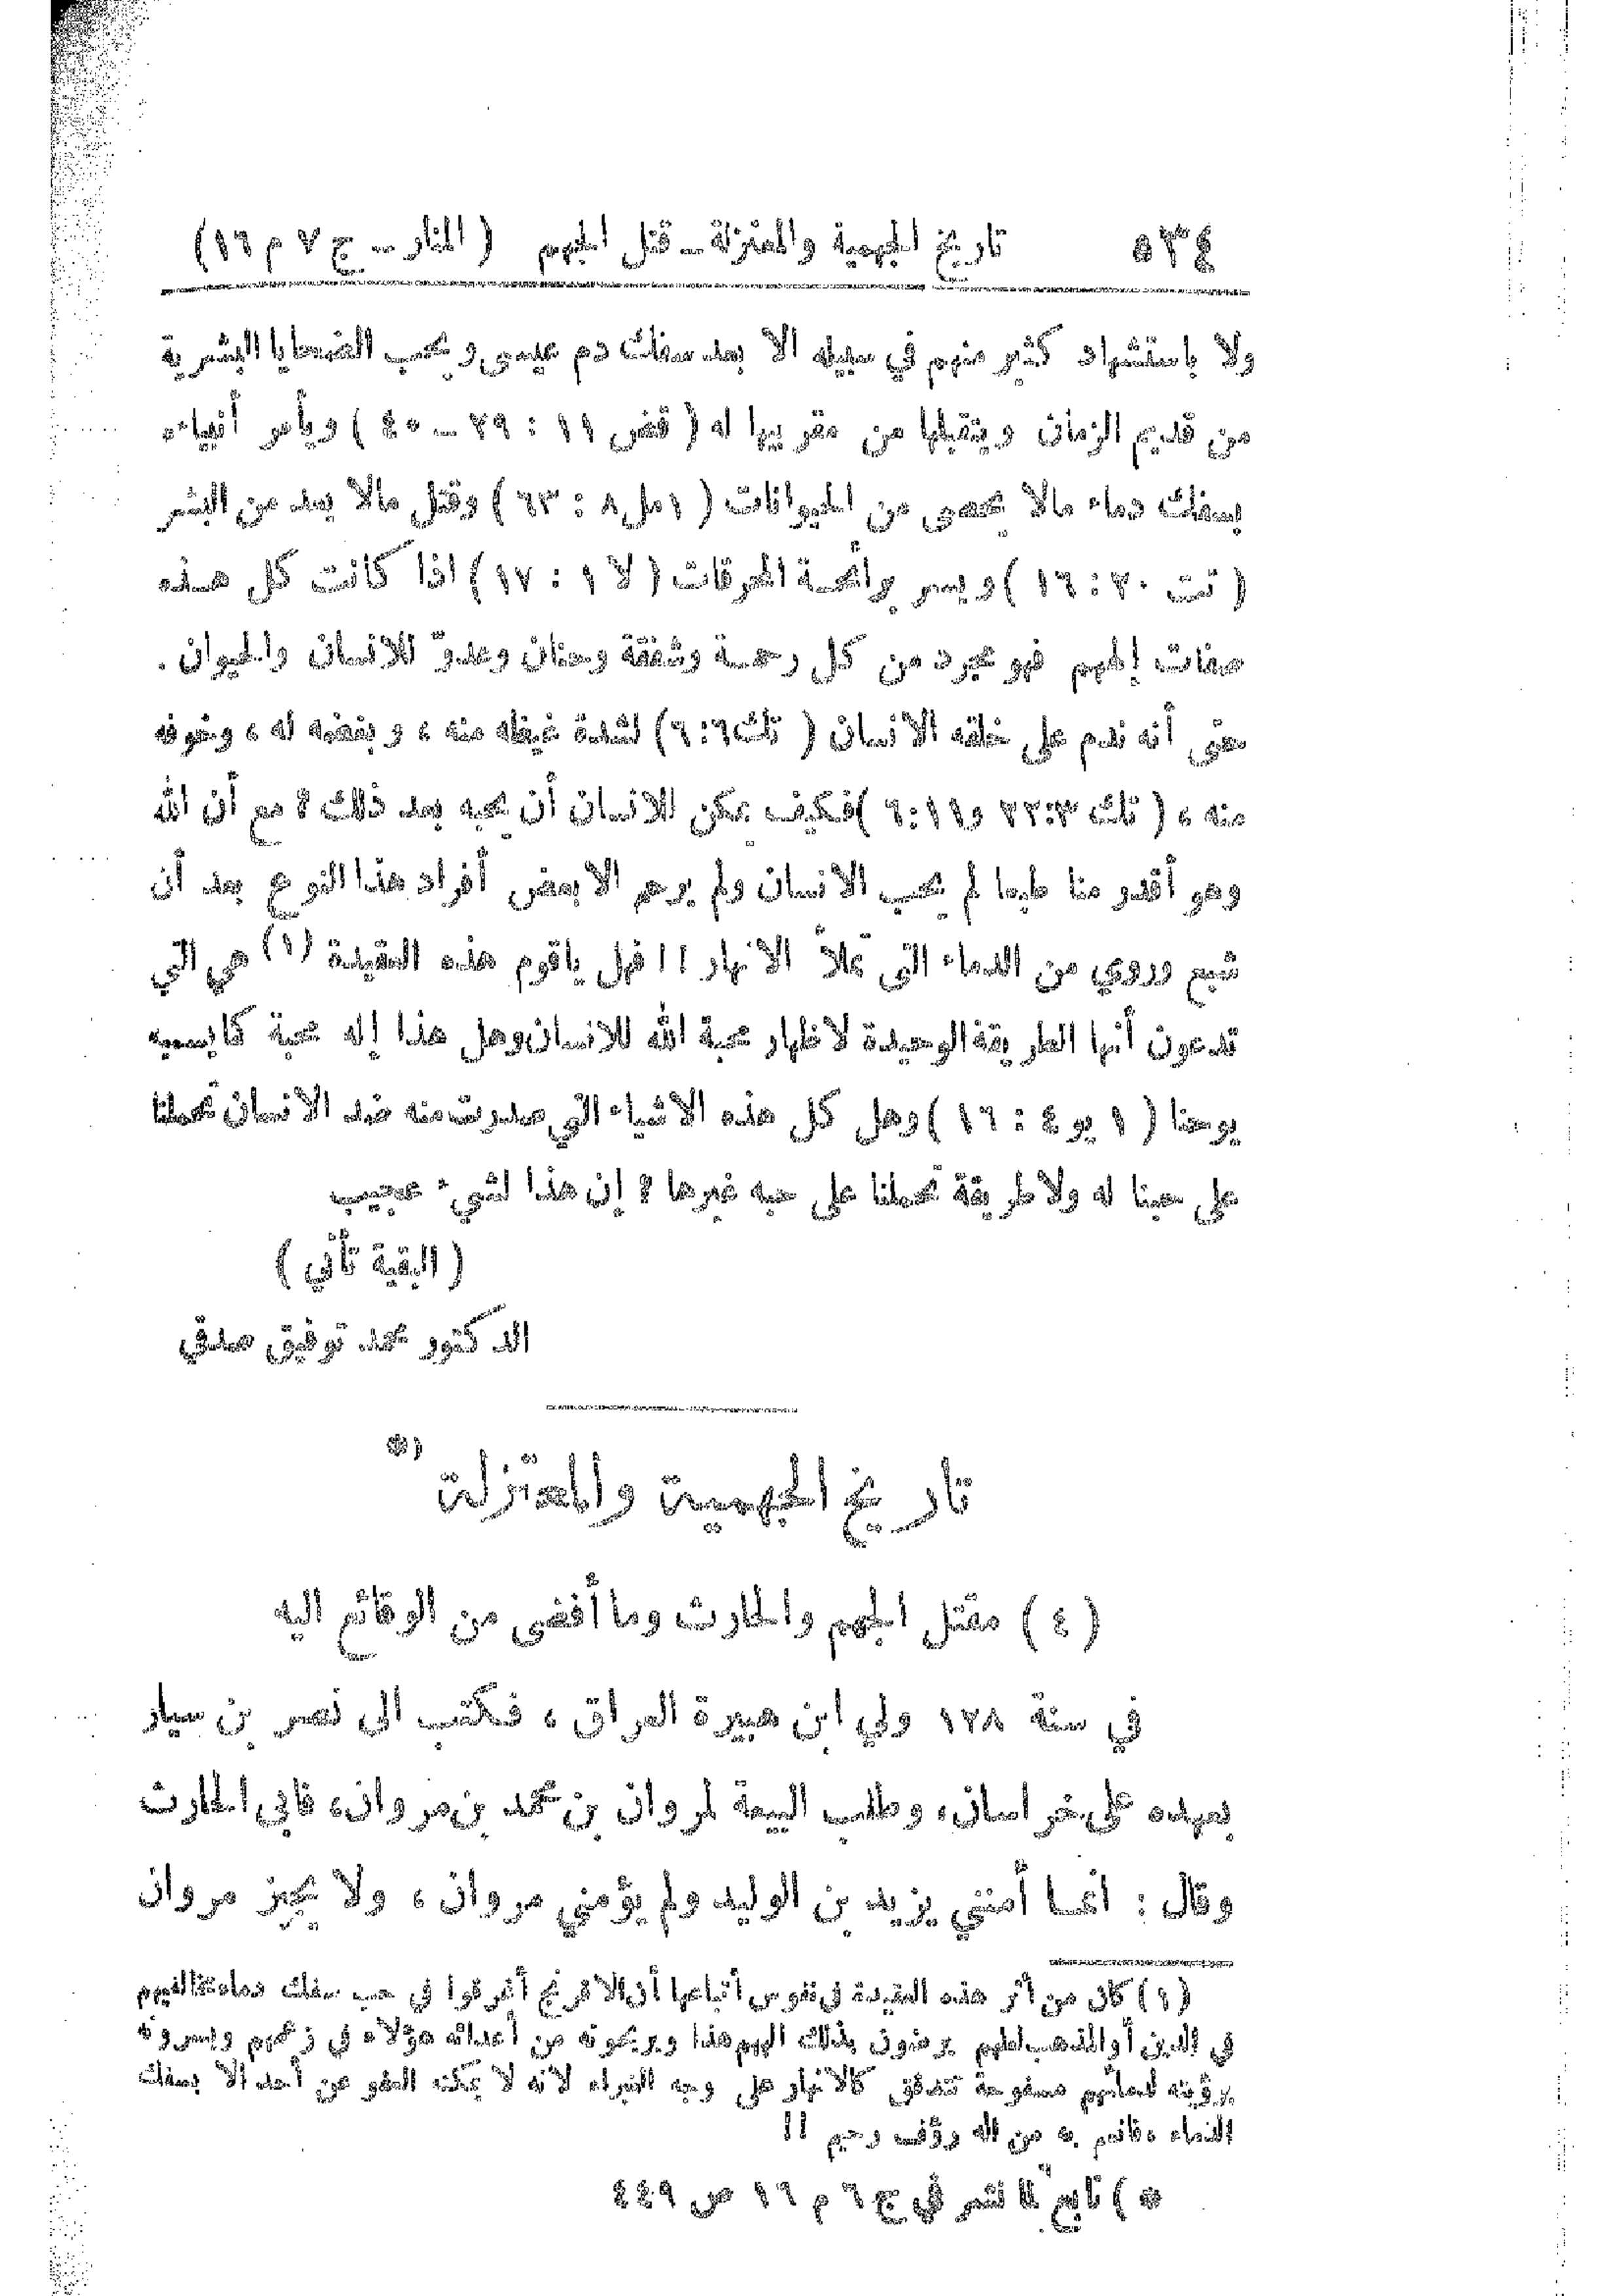 ٥٣٤ تاريخ الجهمية والمعتزلة ـ قتل الجهم ( المنار ـ ج ٧ م ١٦)
ولا باستشهاد كثير منهم في سبيله الا بعد سفك دم عيسى ويحب الضحايا البشرية
من قديم الزمان ويتقبلها من مقربيها له ( قض ١١ : ٢٩ ـ ٤٠ ) ويأمر أنبياءه
بسفك دماء مالا يحصى من الحيوانات ( ١مل ٨ : ٦٣ ) وقتل مالا يعد من البشر
( تث ٢٠ : ١٦ ) ويسر برائحة المحرقات ( لا ١ : ١٧ ) اذا كانت كل هذه
صفات إلههم فهو مجرد من كل رحمة وشفقة وحنان وعدوّ للانسان والحيوان .
حتى أنه ندم على خلقه الانسان ( تك ٦:٦ ) لشدة غيظه منه ، وبغضه له ، وخوفه
منه ، ( تك ٢٢:٣ و ٦:١١ ) فكيف يمكن للانسان أن يحبه بعد ذلك ؟ مع أن الله
وهو أقدر منا طبعا لم يحب الانسان ولم يرحم الا بعض أفراد هذا النوع بعد أن
شبع وروي من الدماء التى تملأ الانهار !! فهل ياقوم هذه العقيدة (١) هي التي
تدعون أنها الطريقة الوحيدة لاظهار محبة الله للانسان وهل هذا إله محبة كما يسميه
يوحنا ( ١ يو ٤ : ١٦ ) وهل كل هذه الاشياء التي صدرت منه ضد الانسان تحملنا
على حبنا له ولا طريقة تحملنا على حبه غيرها ؟ إن هذا لشيء عجيب
( البقية تأتي )
الدكتور محمد توفيق صدقي
تاريخ الجهمية والمعتزلة *)
( ٤ ) مقتل الجهم والحارث وما أفضى من الوقائع اليه
في سنة ١٢٨ ولي ابن هبيرة العراق ، فكتب الى نصر بن سيار
بعهده على خراسان ، وطلب البيعة لمروان بن محمد بن مروان ، فابى الحارث
وقال : انمـا أمنني يزيد بن الوليد ولم يؤمني مروان ، ولا يجيز مروان
(١) كان من أثر هذه العقيدة في نفوس أتباعها أن الافرنج أغرقوا في حب سفك دماء مخالفيهم
في الدين أو المذهب لعلهم يرضون بذلك الههم هذا ويريحونه من أعدائه هؤلاء في زعمهم ويسرونه
برؤيته لدمائهم مسفوحة تتدفق كالانهار على وجه الغبراء لانه لا يمكنه العفو عن أحد الا بسفك
الدماء ، فانعم به من اله رؤف رحيم !!
*) تابع لما نشر في ج ٦ م ١٦ ص ٤٤٩